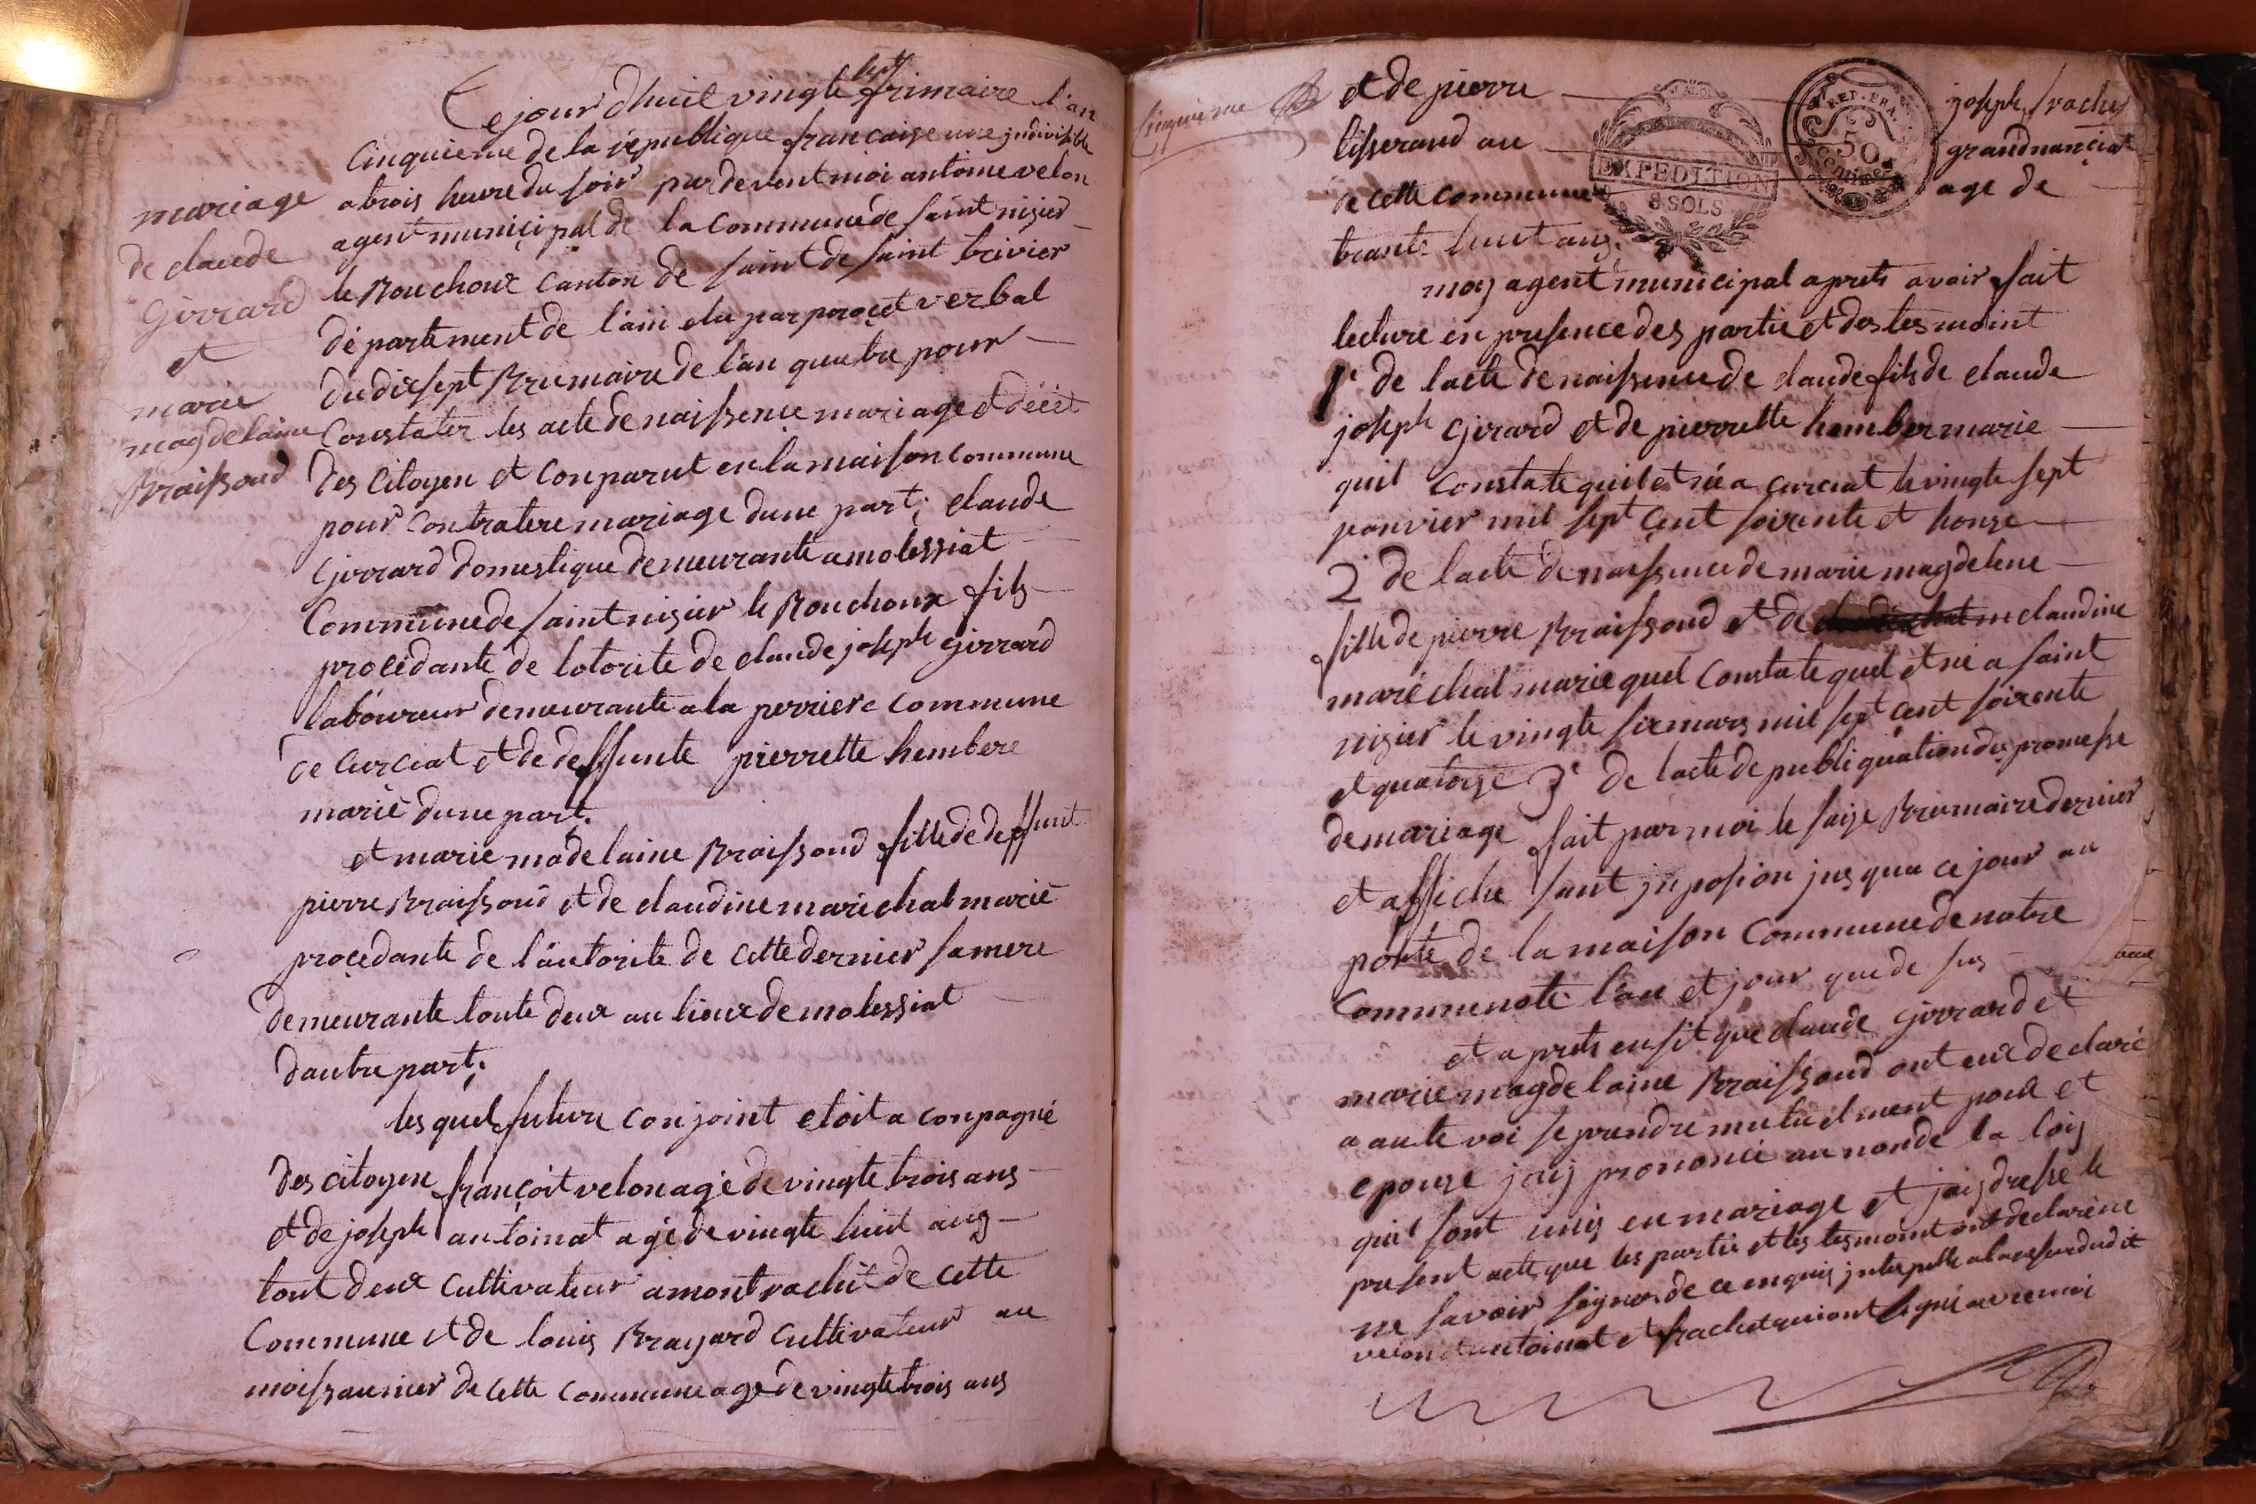 mariage
de claude
Girrard
et
marie
magdelaine
Braissoud
sept
Cejourdhuit vingte frimaire l'an
Cinquieme de la république francaise une jndivisible
a trois heure du soir par devent moi antoine velon
agent municipal de la commune de saint nisier
le Bouchoux canton de saint de saint trivier
département de l'ain elu par proçet verbal
du disept Brumaire de l'an quatre pour
Constater les acte de naissence mariage et décét
des Citoyen et conparut en la maison commune
pour contratere mariage dune part; claude
Girrard domestique demeurante a molessiat
Commune de saint nisier le Bouchoux fils
procèdante de lotorite de claude joseph Girrard
laboureur demeurante a la perriere commune
de Curciat et de deffunte pierrette hembere
marié dune part.
et marie madelaine Braissoud fille de deffunt
pierre Braissoud et de claudine marèchal marié
proçedante de l'autorite de cette dernier sa mere
demeurante toute deux au lieux de molessiat
dautre part;
les quel future conjoint etoit a conpagné
des citoyen françoit velon agé de vingte trois ans
et de joseph antoinat agé de vingte huit ans
tout deux cultivateur a montrachit de cette
Commune et de louis Brayard cultivateur au
moissaunier de cette commune agé de vingte trois ans
Cinquieme
et de pierre joseph frachet
tisserand au grandnançiat
de cette commune age de
trante huit ans.
EXPEDITION
8 SOLS
REP. FRA.
50
centimes
moy agent municipal aprets avoir fait
lecture en presence des partie et des tesmoint
1e de lacte de naissence de claude fils de claude
joseph Girard et de pierrette hember marie
quil constate quil et né a curciat le vingte sept
janvier mil sept çent soixente et honze
2e de lacte de naissence de marie magdelene
fille de pierre Braissoud et de claudine
maréchal marie quel constate quel et né a saint
nisier le vingte six mars mil sept çent soixente
et quatorze 3e de lacte de publiquation du promesse
de mariage fait par moi le saize Brumaire dernier
et affiche sant jnposion jusqua ce jour au
porte de la maison commune de notre
Commune note l'an et jour que de sus
et aprets ensit que claude Girrard et
marie magdelaine Braissoud ont eux declaré
a aute voi se prendre mutuelment pour et
epouze jaij prononcé au nonde la loij
quil sont unis en mariage et jaij dresse le
present acte que les partie et les tesmoint ont declarè ne
ne savoir signer de ce enquis jnterpelle a la resserve dudit
velon et antoinat et frachet qui ont signé avec moi